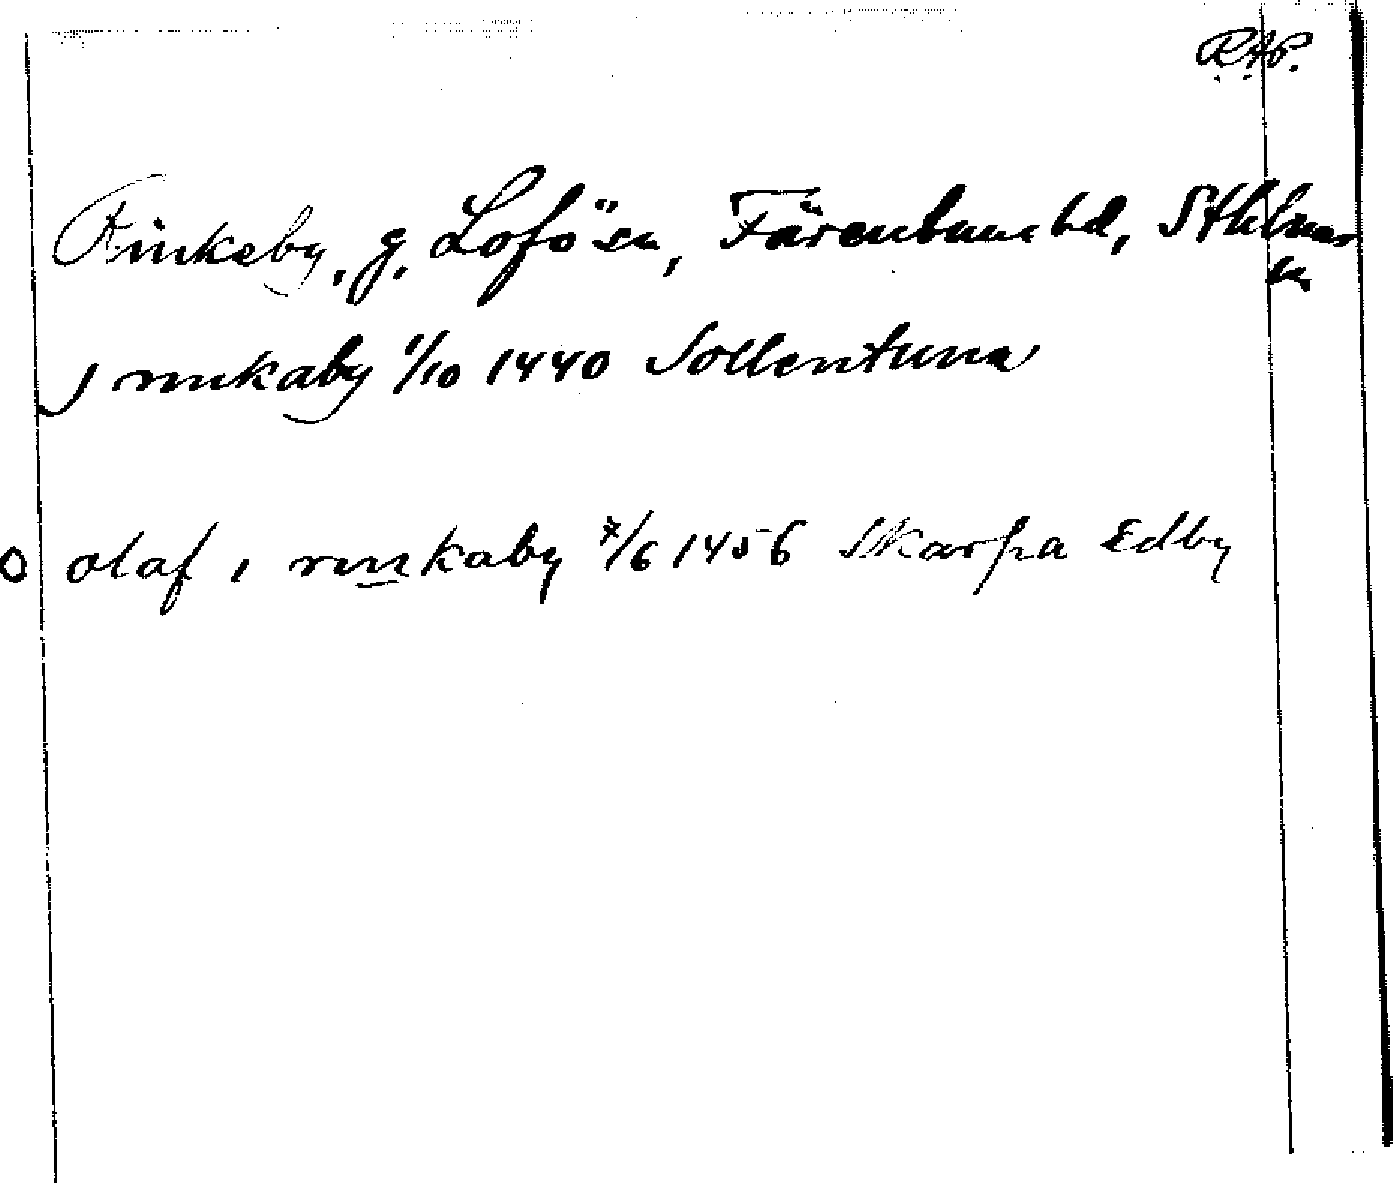 R.A.P.
Rinkeby, g. Lofö sn, Färentuna hd, Sthlms
ln
J rinkaby 1/10 1440 Sollentuna
O olaf i rinkaby 7/6 1456 Skarpa Edby